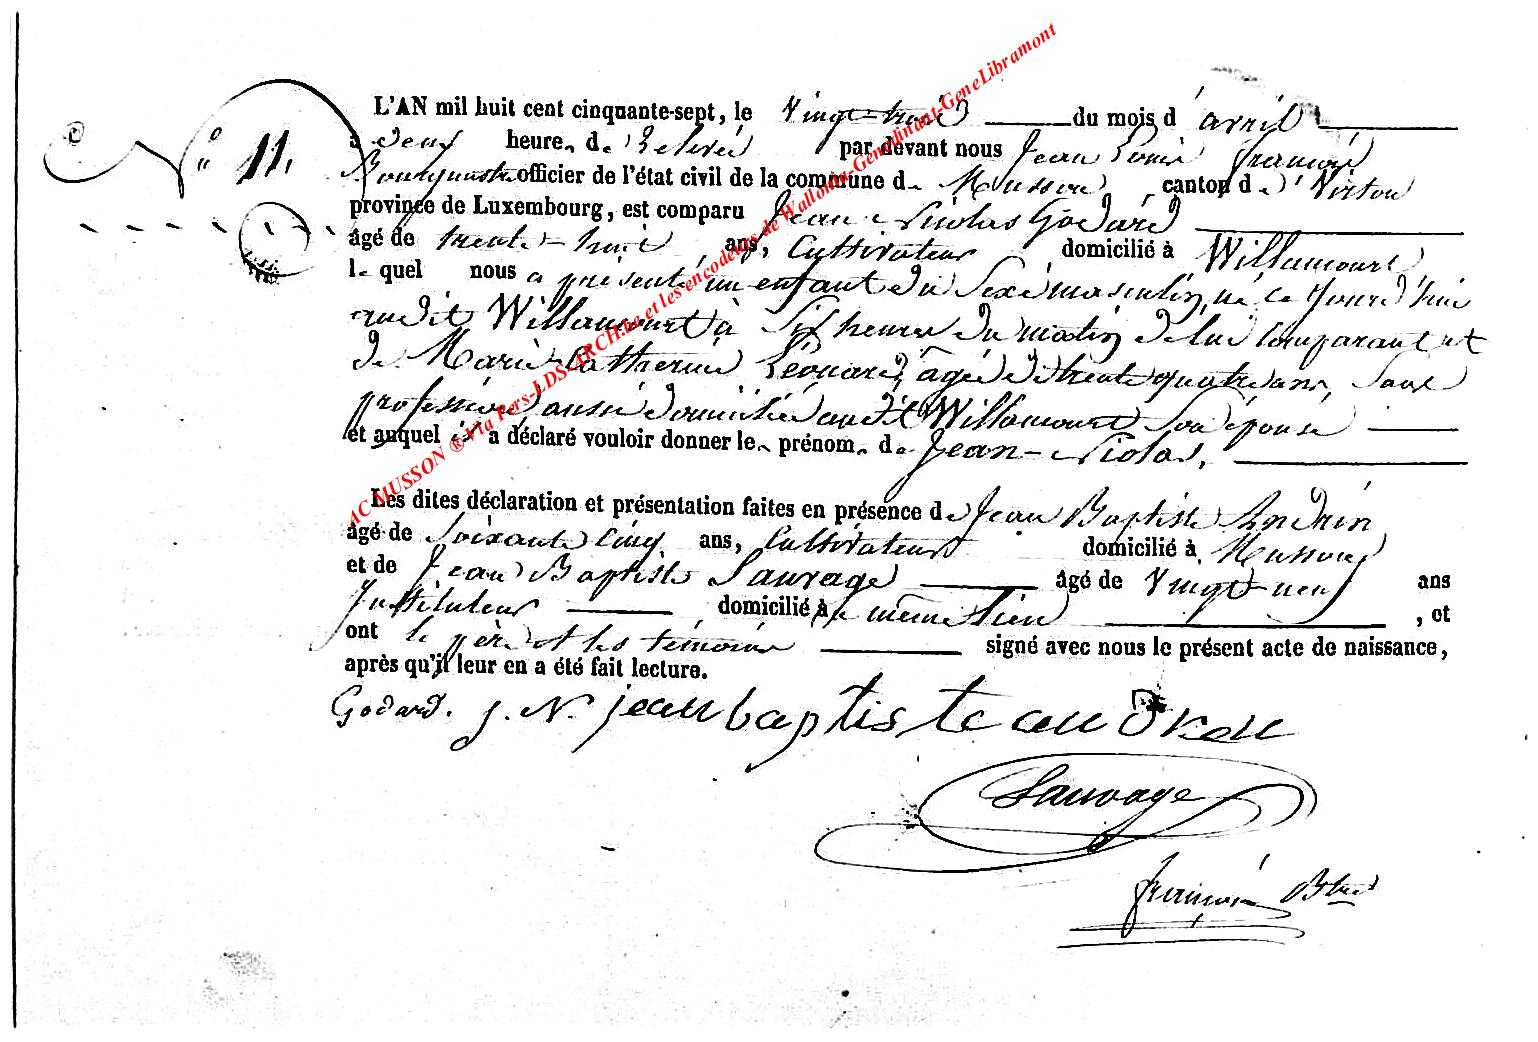 N° 11.
L'AN mil huit cent cinquante-sept, le Vingt-trois du mois d'avril
à deux heures de Relevée par devant nous Jean Louis François
Bourgmestre officier de l'état civil de la commune de Musson, canton de Virton
province de Luxembourg, est comparu Jean-Nicolas Godard
âgé de trente-huit ans, Cultivateur domicilié à Willancourt
lequel nous a présenté un enfant du Sexe masculin, né ce Jourd'hui
audit Willancourt à Six heures du matin de lui Comparant et
de Marie-Catherine Léonard, âgée de trente quatre ans, Sans
profession, aussi domiciliée audit Willancourt Son épouse
et auquel il a déclaré vouloir donner les prénoms de Jean-Nicolas.
Les dites déclaration et présentation faites en présence de Jean Baptiste Andrin
âgé de Soixante Cinq ans, Cultivateur domicilié à Musson
et de Jean Baptiste Sauvage âgé de Vingt-neuf ans
Instituteur domicilié au même lieu, et
ont le père et les témoins signé avec nous le présent acte de naissance,
après qu'il leur en a été fait lecture.
Godard. J. N. jean baptiste
Sauvage
François Btre
AC MUSSON ® Via Pers-LDS-ARCH.be et les encodeurs de Wallonia-Genedinant-GeneLibramont